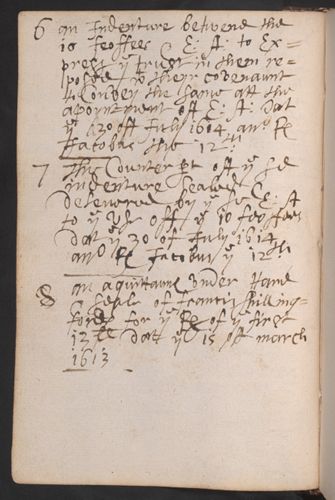 6 an Indenture betweene the
10 feoffees E: A: to Ex=
press ye trust in them re=
posed & theyr covenaunt
to Convey the same att the
apoyntment of E: A: Dat
ye 30 off July 1614 ano Rs
Jacobus the 12th
7 The Counter pt off ye sd
indenture sealed &
delivered by ye sd E: A
to ye use off ye 10 feoffees
dat ye 30 of July 1614
ano Rs Jacobus ye 12th
8 an aquittanc under Hand
& seale of francis Shilling-
forde for ye of ye first
dat ye 15 off march
1613